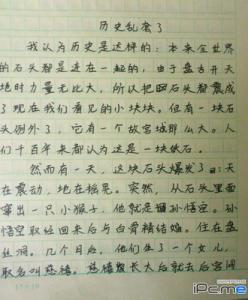 历史乱套了
我认为历史是这样的：本来全世界
的石头都是连在一起的，由于盘古开天
地时力量无比大，所以把四石头都震成
了现在我们看见的小块块。但有一块石
头例外了，它有一个故宫城那么大。人
们千百年来都认为这是一块铁石。
然而有一天，这块石头爆发了：天
在震动，地在摇晃。突然，从石头里面
窜出一只小猴子，他就是孙悟空。孙
悟空取经回来后与白骨精结婚。住在盘
丝洞。几个月后，他们生了一个女儿，
取名叫慈禧。慈禧长大后就去后宫
iPcme